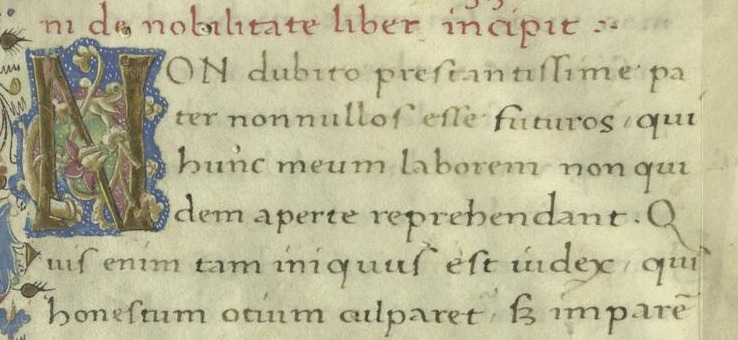 ni de nobilitate liber incipit :~
NON dubito prestantissime pa
ter nonnullos esse futuros / qui
hunc meum laborem non qui
dem aperte reprehendant. Q
uis enim tam iniquus est iudex / qui
honestum otium culparet / sꝫ imparē